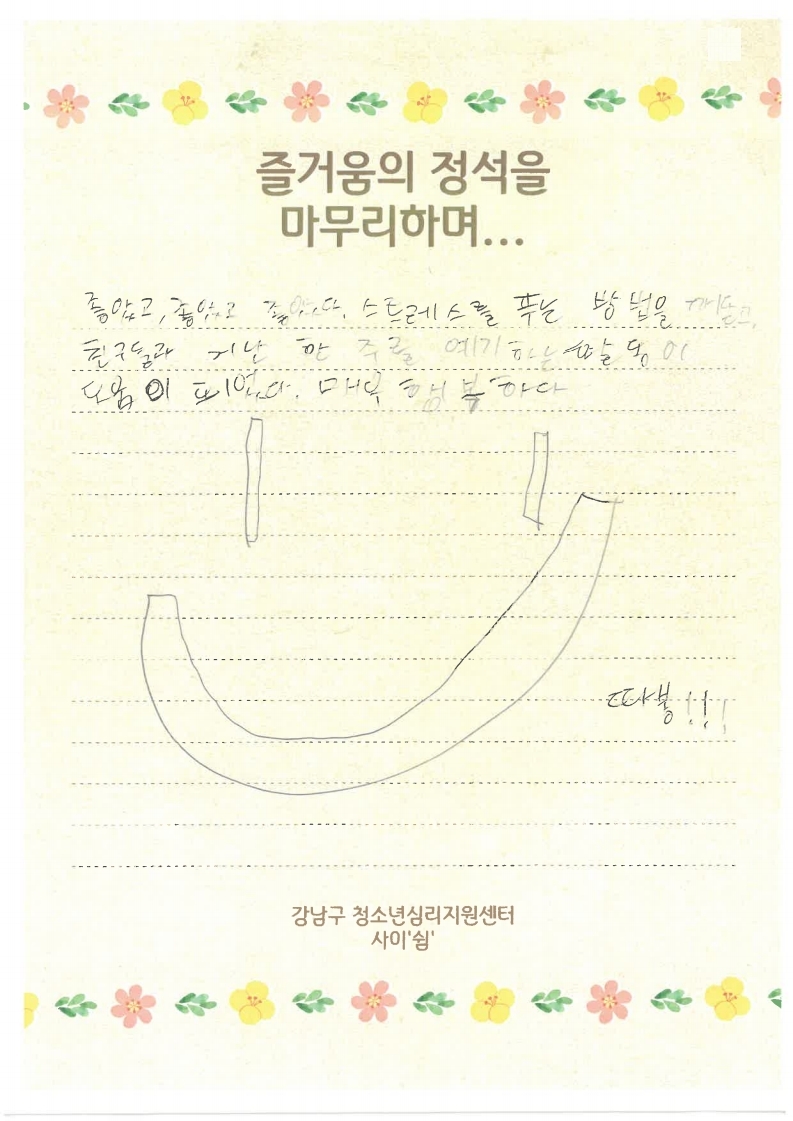 즐거움의 정석을
마무리하며...
좋았고, 좋았고 좋았다. 스트레스를 푸는 방법을 깨닫고,
친구들과 지난 한 주를 얘기하는 활동이
도움이 되었다. 매우 행복하다
따봉!!!
강남구 청소년심리지원센터
사이'쉼'